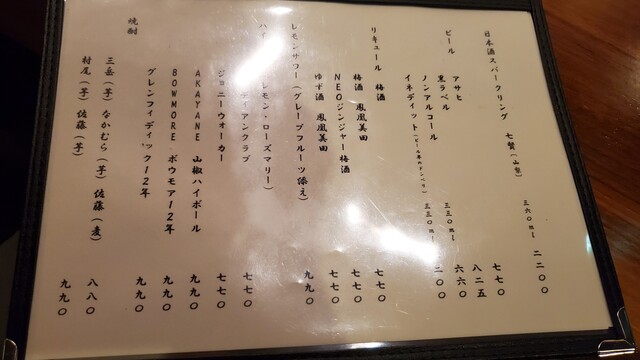 日本酒スパークリング 七賢(山梨) 三六〇ml 二二〇〇
ビール アサヒ 七七〇
黒ラベル 八二五
ノンアルコール 三三〇ml 六六〇
イネディット(ビール界のドンペリ) 三三〇ml 二〇〇
リキュール 梅酒 七七〇
梅酒 鳳凰美田 七七〇
NEOジンジャー梅酒 七七〇
ゆず酒 鳳凰美田
レモンサワー(グレープフルーツ添え) 九九〇
ハイ レモン・ローズマリー)
ィアンクラブ 七七〇
ジョニーウォーカー 七七〇
AKAYANE 山椒ハイボール 九九〇
BOWMORE ボウモア12年 九九〇
グレンフィディック12年 九九〇
焼酎
三岳(芋) なかむら(芋) 佐藤(麦) 八八〇
村尾(芋) 佐藤(芋) 九九〇